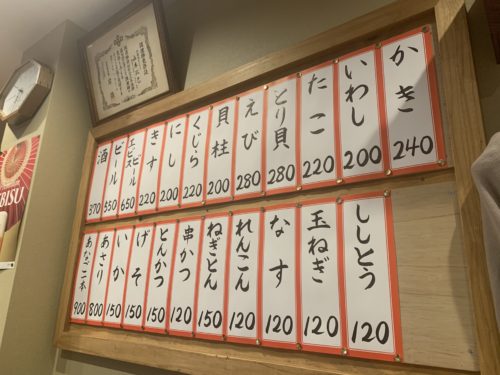 かき 240
いわし 200
たこ 220
とり貝 280
えび 280
貝柱 200
くじら 220
にし 200
きす 220
エビスビール 650
ビール 550
酒 370
ししとう 120
玉ねぎ 120
なす 120
れんこん 120
ねぎとん 150
串かつ 120
とんかつ 150
げそ 150
いか 150
あさり 800
あなご一本 900
EBISU